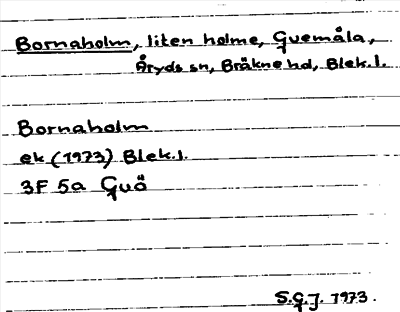 Bornaholm, liten holme, Guemåla,
Åryds sn, Bräkne hd, Blek.l.
Bornaholm
ek (1973) Blek.l.
3F 5a Guö
S.G.J. 1973.